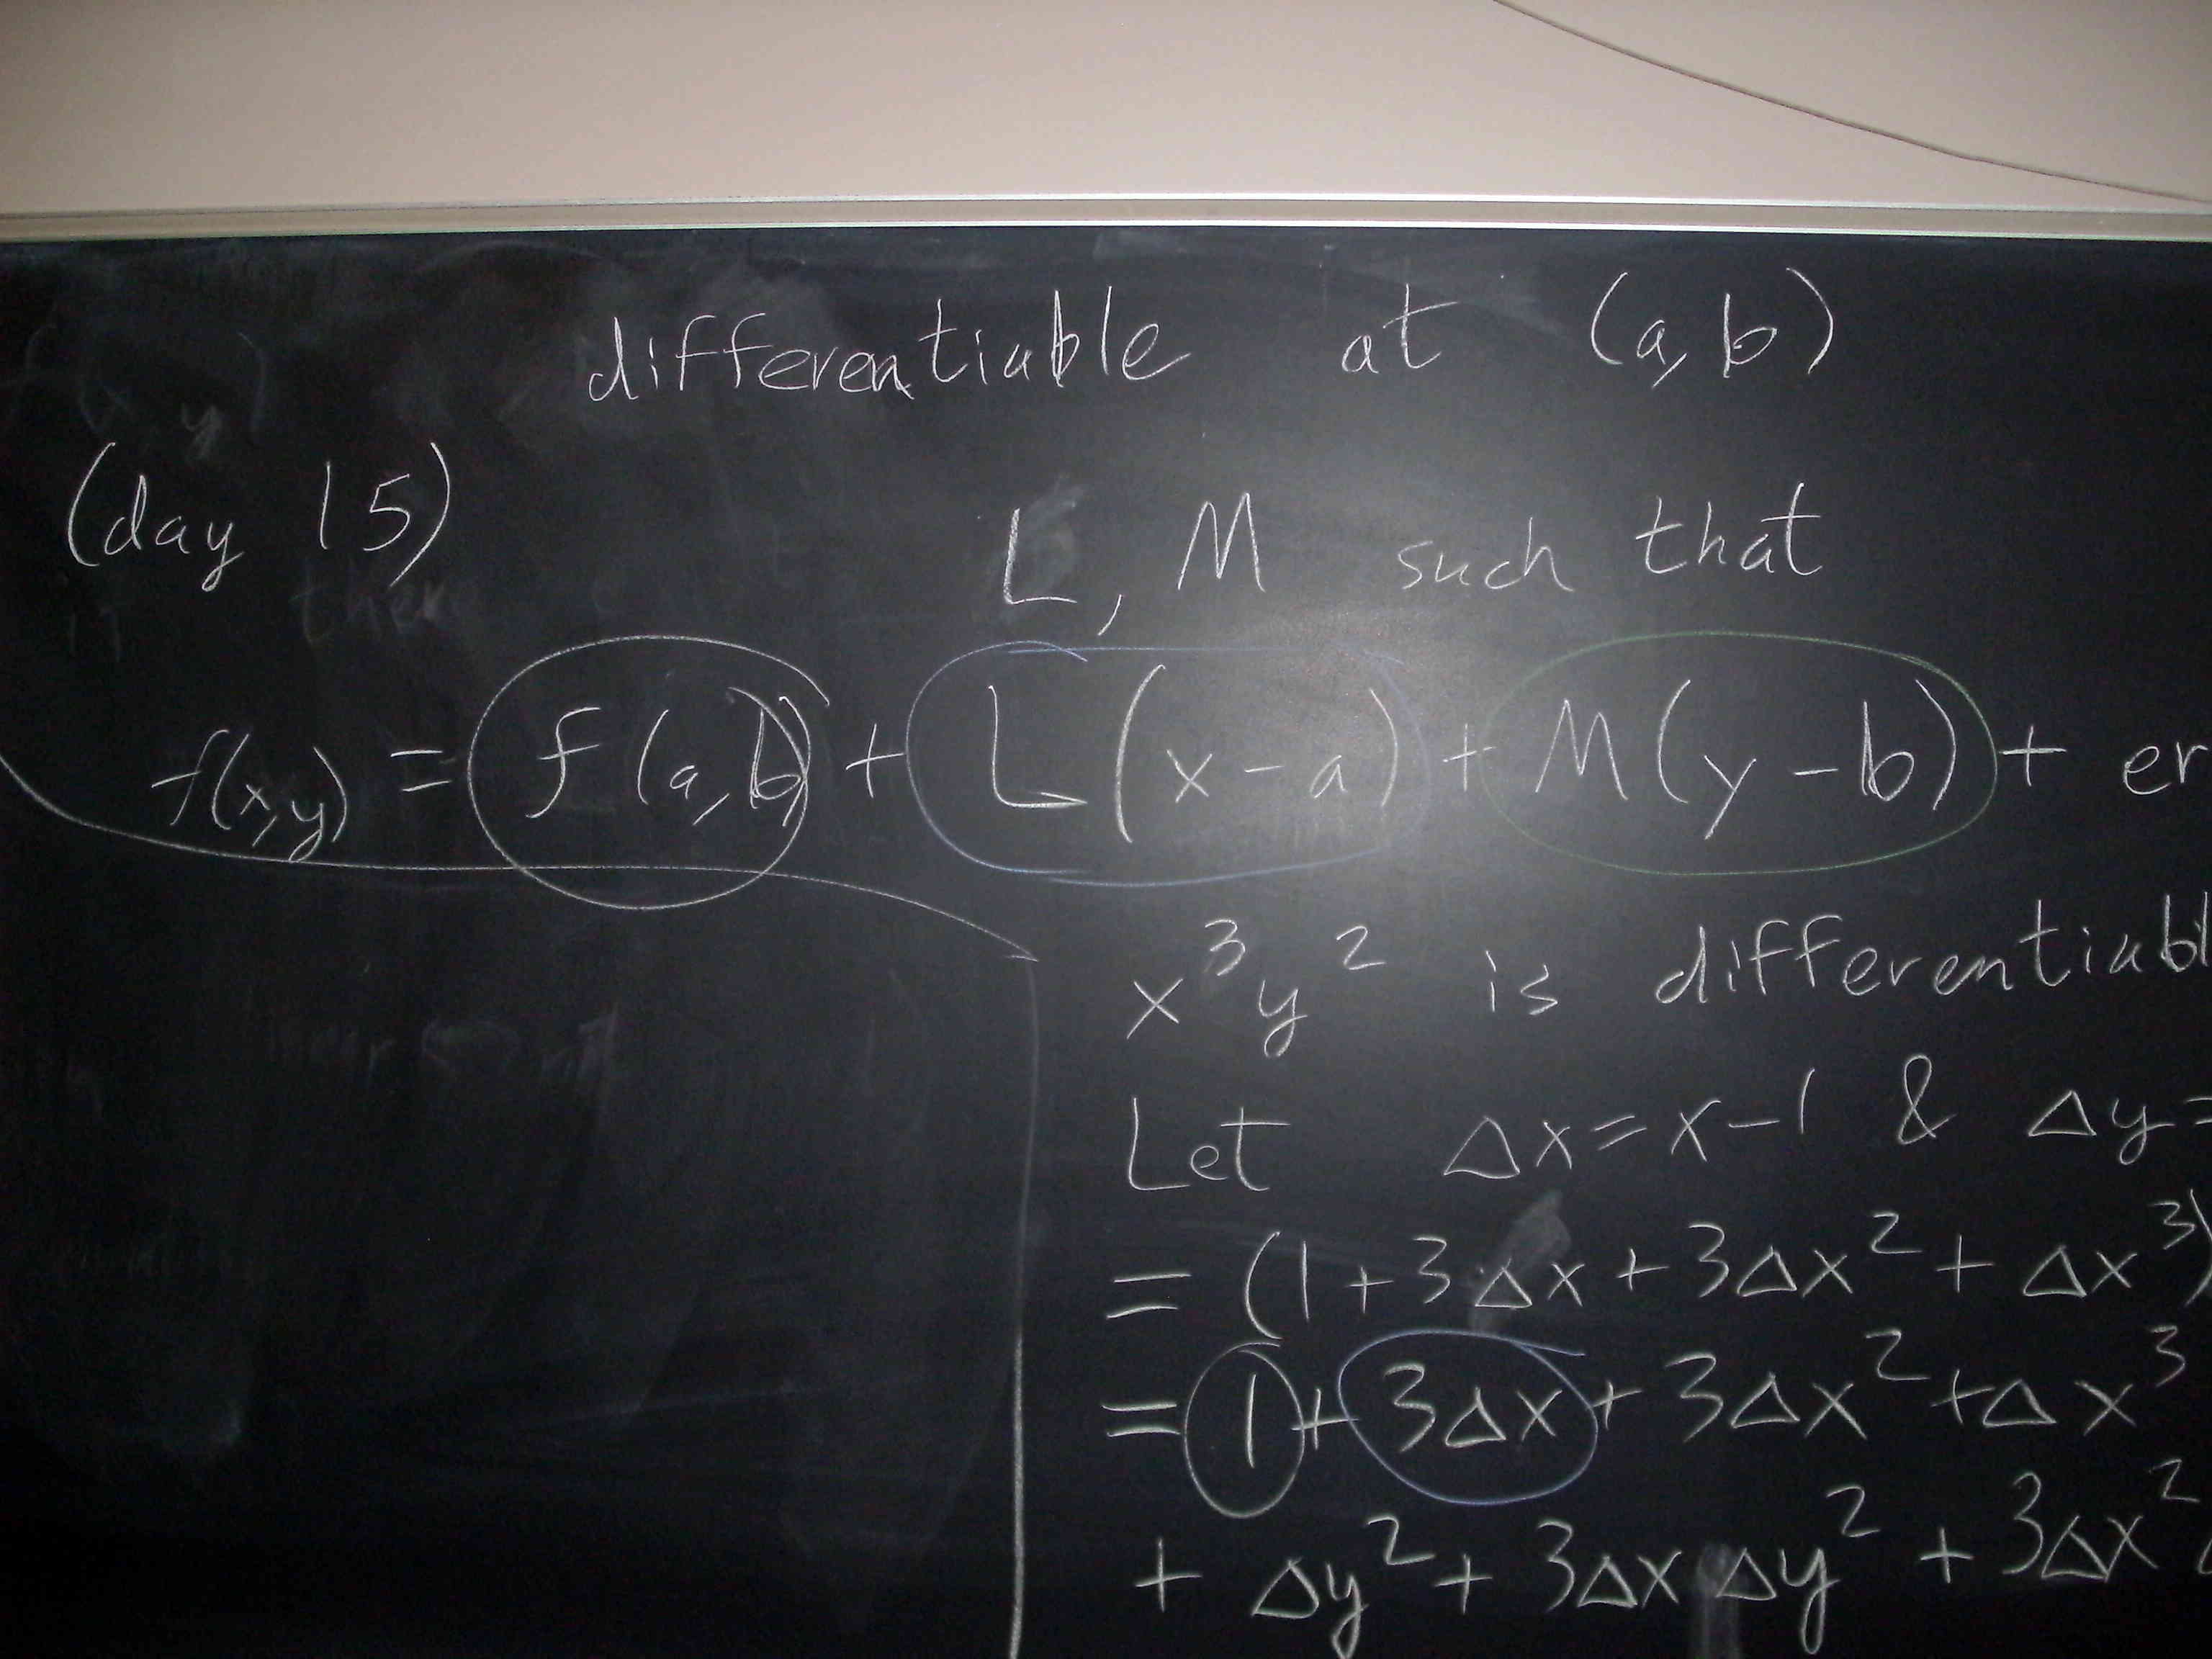 differentiable at (a,b)
(day 15)
L, M such that
f(x,y) = f(a,b) + L(x-a) + M(y-b) + er
x³y² is differentiabl
Let Δx=x-1 & Δy=
= (1+3Δx+3Δx²+Δx³)
= 1+3Δx+3Δx²+Δx³
+ Δy²+3ΔxΔy²+3Δx²